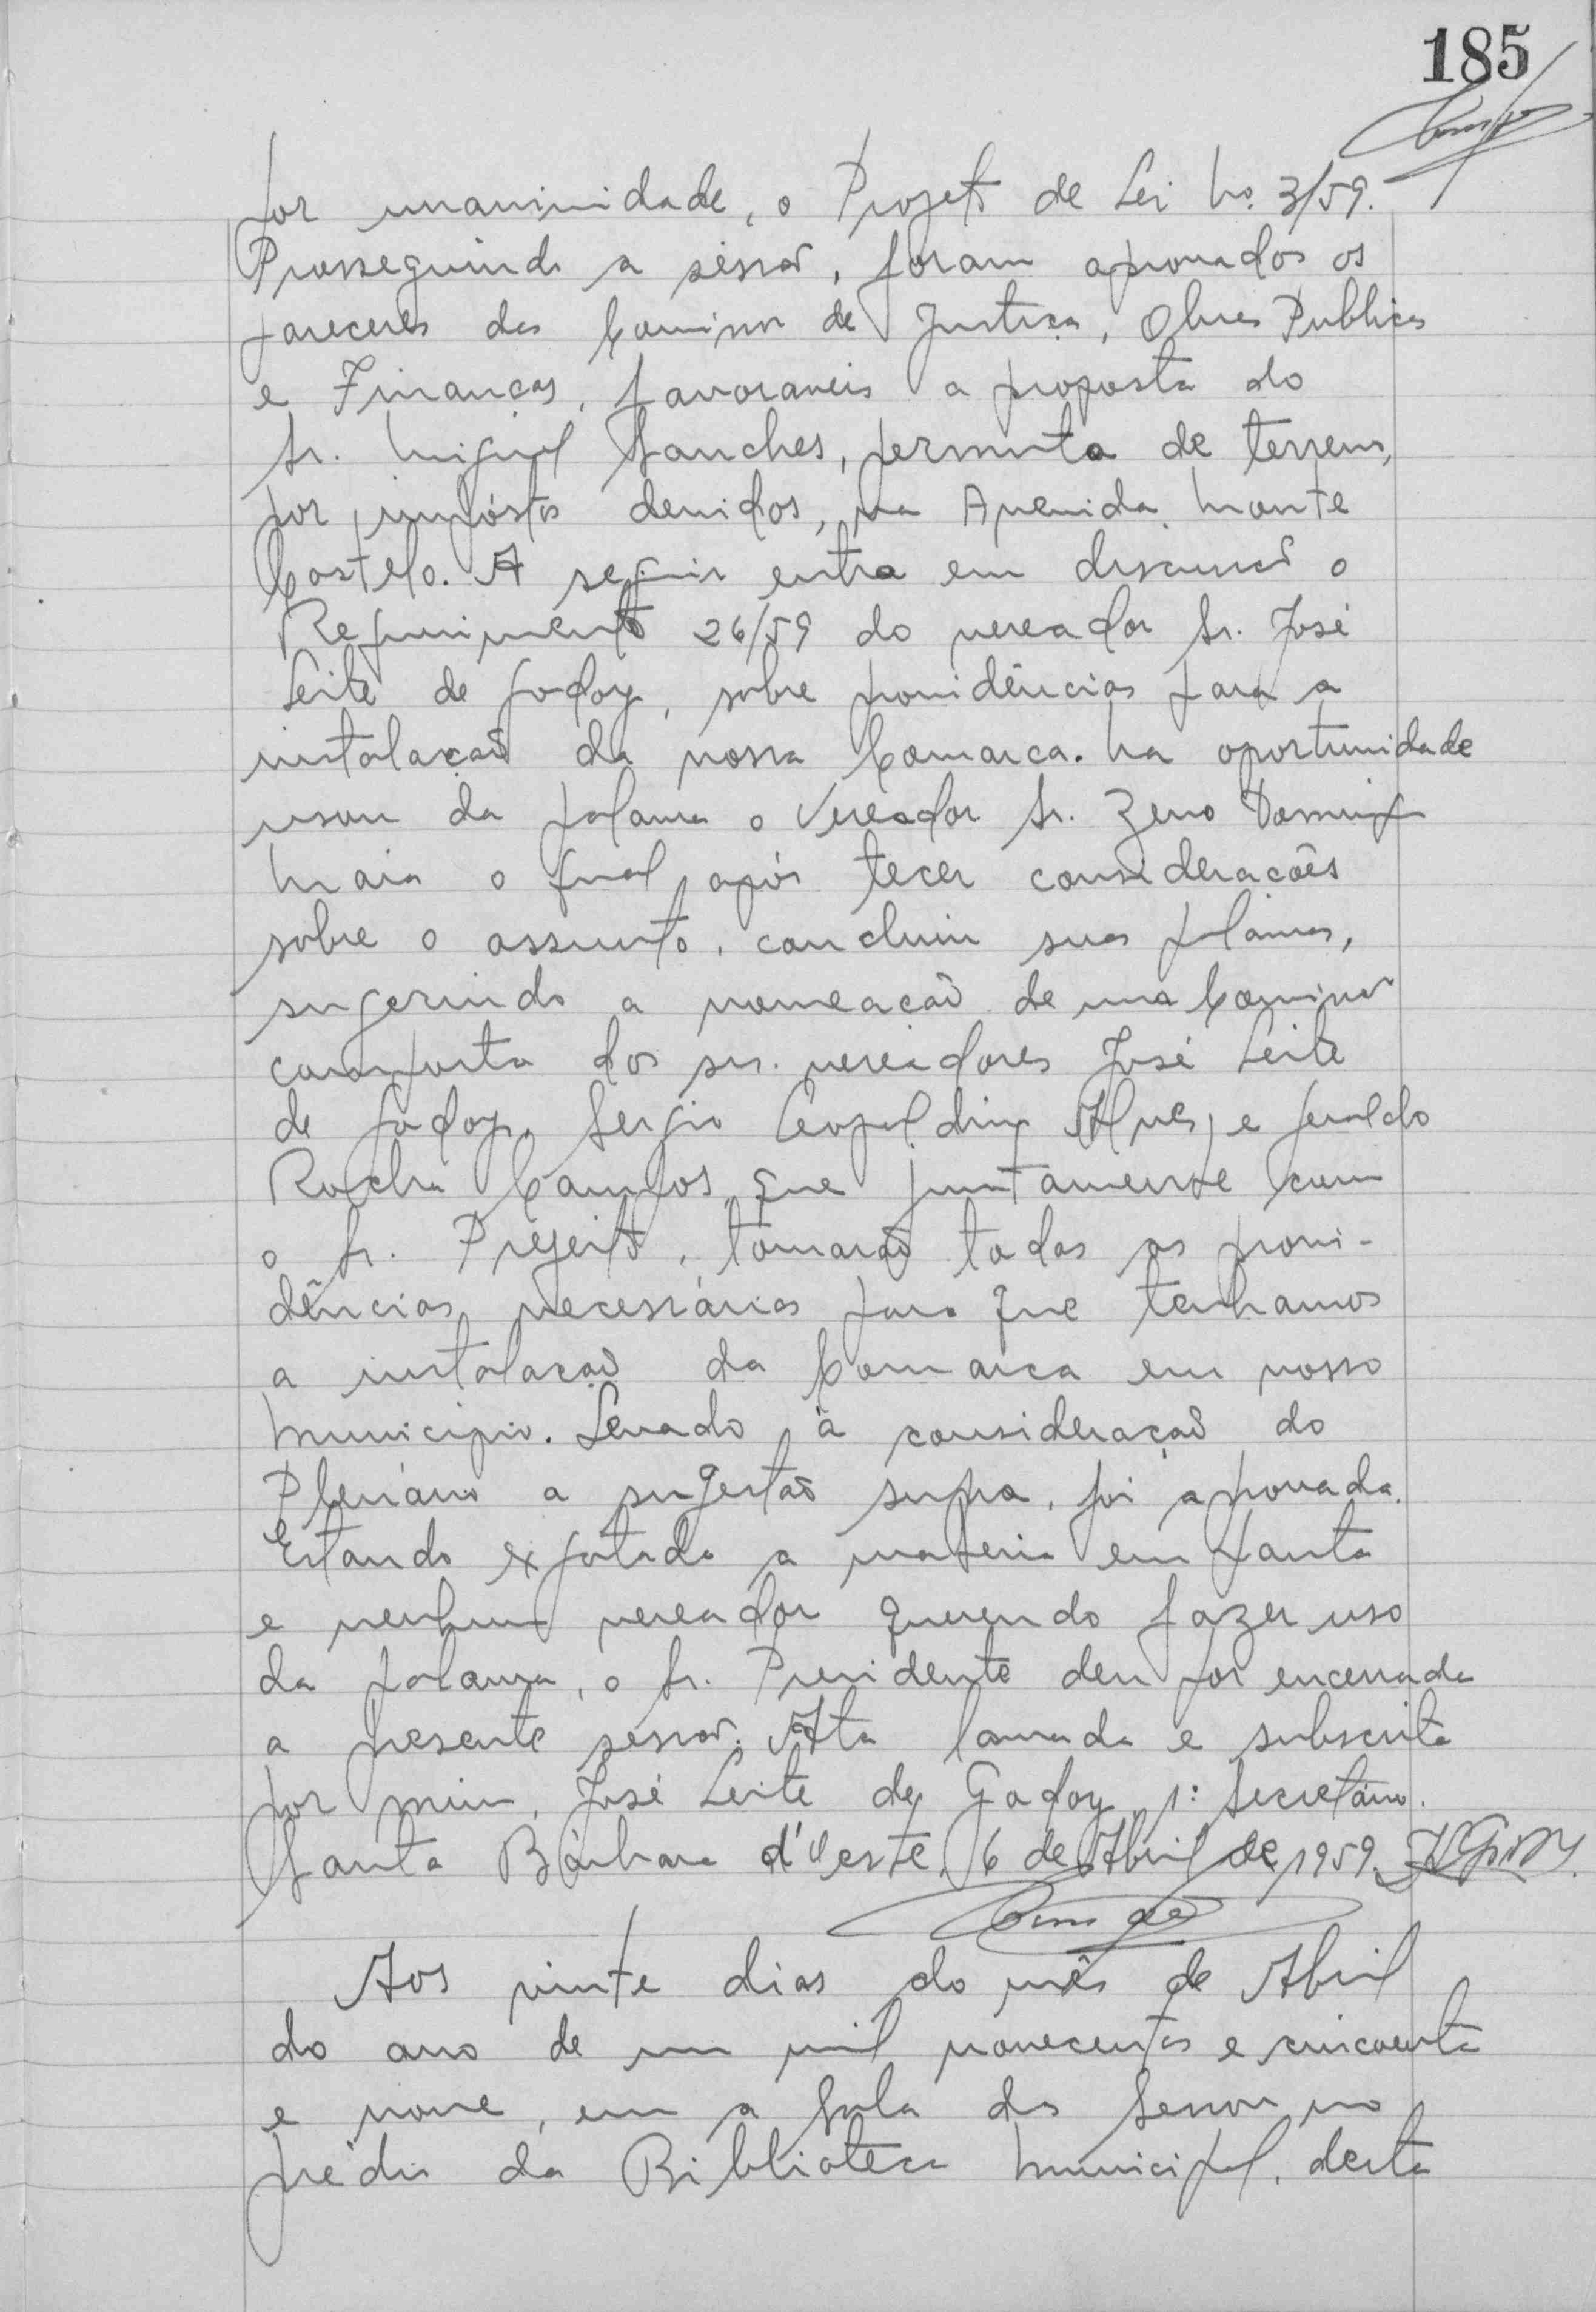 185
por unanimidade, o Projeto de Lei No. 3/59.
Prosseguindo a sessão, foram aprovados os
pareceres das Comissões de Justiça, Obras Publicas
e Finanças, favoraveis a proposta do
Sr. Miguel Sanches, permuta de terreno,
por impóstos devidos, na Avenida Monte
Castelo. A seguir entra em discussão o
Requerimento 26/59 do vereador Sr. José
Leite de Godoy, sobre providências para a
instalação da nossa Comarca. Na oportunidade
usou da palavra o Vereador Sr. Zeno Domingos
Maia o qual após tecer considerações
sobre o assunto, concluiu suas palavras,
sugerindo a nomeação de uma Comissão
composta dos srs. vereadores José Leite
de Godoy, Sergio Leopoldino Alves, e Geraldo
Rocha Campos, que juntamente com
o Sr. Prefeito, tomarão todas as provi-
dências necessárias para que tenhamos
a instalação da Comarca em nosso
Municipio. Levado à consideração do
Plenário a sugestão supra, foi aprovada.
Estando exgotada a materia em pauta
e nenhum vereador querendo fazer uso
da palavra, o Sr. Presidente deu por encerrada
a presente sessão. Ata lavrada e subscrita
por mim, José Leite de Godoy, 1º Secretário.
Santa Bárbara d'Oeste, 6 de Abril de 1959.
Aos vinte dias do mês de Abril
do ano de um mil novecentos e cincoenta
e nove, em a Sala das Sessões no
prédio da Biblioteca Municipal, desta